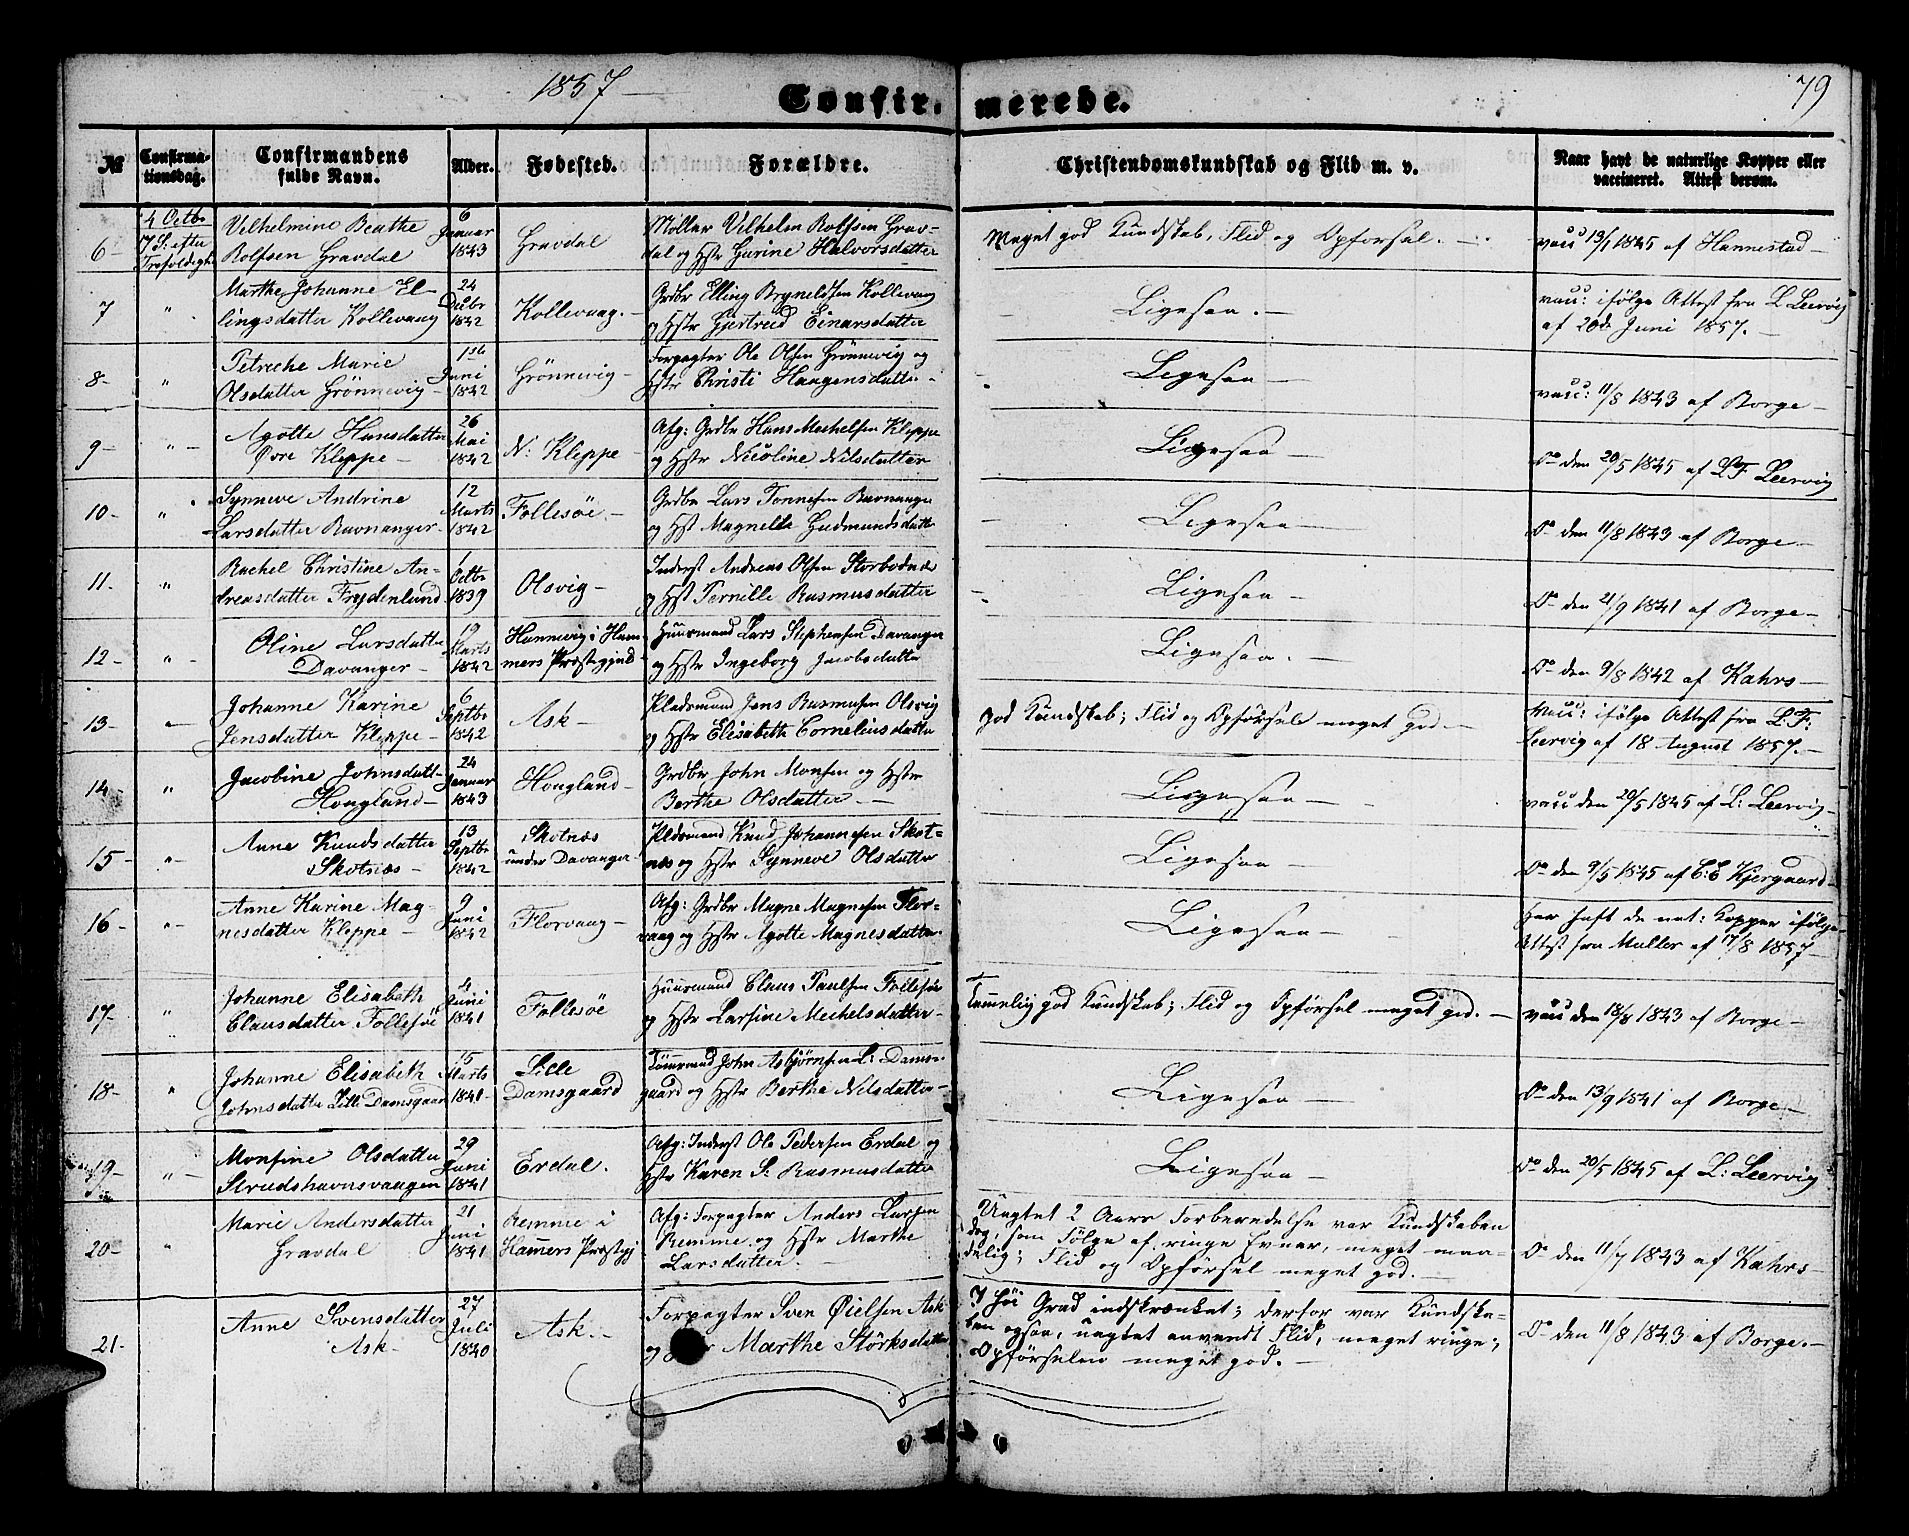 1857 —
79
Confirmerede.
№
Confirma-
tionsdag.
Confirmandens
fulde Navn.
Alder.
Fødested.
Forældre.
Christendomskundskab og Flid m. v.
Naar havt de naturlige Kopper eller
vaccineret. Attest derom.
6-
4 Octbr
17 S: efter
Trefoldigh:
Vilhelmine Beathe
Rolfsen Gravdal
6
Januar
1843
Gravdal
Møller Vilhelm Rolfsen Grav-
dal og Hstr Gurine Halvorsdatter
Meget god Kundskab, Flid og Opførsel. —
vacc 13/1 1845 af Hannestad —
7
"
Marthe Johanne El-
lingsdatter Kollevaag
24
Decbr
1842
Kollevaag. —
Grdbr Elling Bryneldsen Kollevaag
og Hstr Gjertrud Einarsdatter
Ligesaa. —
vacc: ifølge Attest fra L Leervig
af 20de Juni 1857. —
8-
"
Petriche Marie
Olsdatter Grönnevig —
1ste
Juni
1842
Grönnevig —
Forpagter Ole Olsen Grönnevig og
Hstr Christi Haagensdatter. —
Ligesaa —
vacc: 11/8 1843 af Borge —
9-
" -
Agotte Hansdatter
Øvre Kleppe —
26
Mai
1842
N: Kleppe —
Afg: Grdbr Hans Mechelsen Kleppe
og Hstr Nicoline Nilsdatter
Ligesaa —
Do den 20/5 1845 af L. F. Leervig
10-
"
Synneve Andrine
Larsdatter Ravnanger —
12
Marts
1842
Follesöe. —
Grdbr Lars Tonnesen Ravnanger
og Hst Magnelle Gudmundsdatt
Ligesaa —
Do den 11/8 1843 af Borge —
11-
"
Rachel Christine An-
dreasdatter Frydenlund
1
Octbr
1839
Olsvig —
Inderst Andreas Olsen Storbodnæs
og Hst Pernille Rasmusdatter
Ligesaa —
Do den 21/9 1841 af Borge —
12-
" -
Oline Larsdatter
Davanger —
19
Marts
1842
Hannevig i Ham
mers Præstegjeld —
Huusmand Lars Stephensen Davanger
og Hstr Ingeborg Jacobsdatter
Ligesaa. —
Do den 9/8 1842 af Kahrs —
13-
" -
Johanne Karine
Jensdatter Kleppe —
6
Septbr
1842
Ask —
Pladsmand Jens Rasmusen Olsvig
og Hstr Elisabeth Corneliusdatter
god Kundskab; Flid og Opførsel meget god —
Vacc: ifølge Attest fra L. F:
Leervig af 18 August 1857. —
14-
"
Jacobine Johnsdatt-
Hougland —
24
Januar
1843
Hougland —
Grdbr John Monsen og Hstr
Berthe Olsdatter —
Ligesaa —
vacc den 20/5 1845 af L: Leervig —
15-
" -
Anne Knudsdatter
Skotnæs —
13
Septbr
1842
Skotnæs
under Davanger —
Pladsmand Knud Johannesen Skot-
næs og Hstr Synneve Olsdatter
Ligesaa —
Do den 9/5 1845 af C: E Kjergaard —
16-
" -
Anne Karine Mag-
nesdatter Kleppe —
9
Juni
1842
Florvaag —
Afg: Grdbr Magne Magnesen Flor-
vaag og Hstr Agotte Magnesdatter
Ligesaa —
Har haft de nat: Kopper ifølge
Attest fra Muller af 17/8 1857 —
17-
"
Johanne Elisabeth
Clausdatter Follesöe
4
Juni
1841
Follesöe
Huusmand Claus Paulsen Follesöe
og Hstr Larsine Mechelsdatter —
Temmelig god Kundskab; Flid og Opførsel meget god. —
vacc den 18/8 1843 af Borge —
18-
"
Johanne Elisabeth
Johnsdatter Lille Damsgaard
15
Marts
1841 —
Lille
Damsgaard
Tømmermd John Asbjørnsen L: Dams-
gaard og Hstr Berthe Nilsdatter —
Ligesaa —
Do den 13/9 1841 af Borge —
19-
" -
Monsine Olsdatter
Strudshavnsvaagen
29
Juni
1841
Erdal.
Afg: Inderst Ole Pedersen Erdal og
Hstr Karen S: Rasmusdatter
Ligesaa —
Do den 20/5 1845 af L: Leervig
20-
"
Marie Andersdatter
Gravdal
21
Juni
1841
Remme i
Hamers Præstegj
Afg: Forpagter Anders Larsen
Remme og Hstr Marthe
Larsdatter. —
Uagtet 2 Aars Forberedelse var Kundskaben
dog, som Følge af ringe Evner, meget maa-
delig; Flid og Opførsel meget god. —
Do den 11/7 1843 af Kahrs —
21-
Anne Svensdatter
Ask —
27
Juli
1840
Ask. —
Forpagter Sven Øielsen Ask
og Marthe Störksdatter
I høi Grad indskrænket; derfor var Kundska-
ben ogsaa, uagtet anvendt Flid, meget ringe;
Opførselen meget god. —
Do den 11/8 1843 af Borge. —